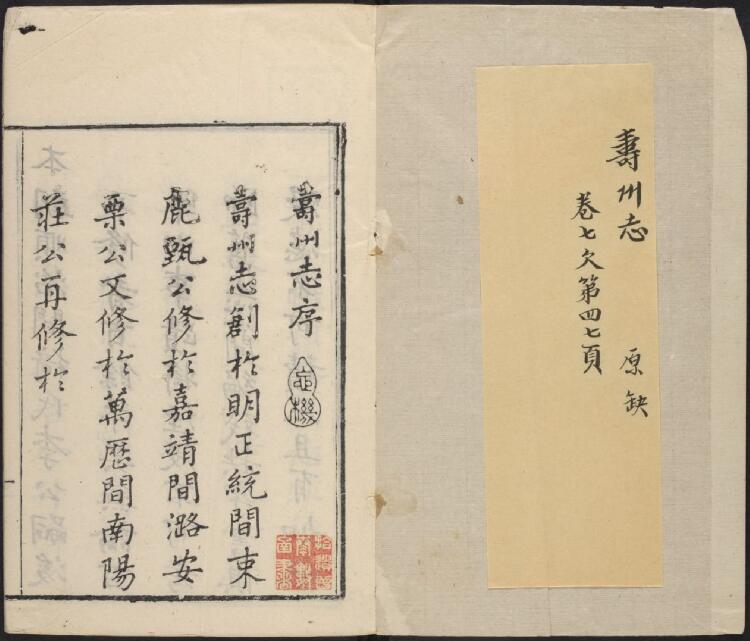 壽州志
卷七欠第四七頁
原缺
壽州志序
壽州志創於明正統間束
鹿甄公修於嘉靖間潞安
栗公又修於萬歷間南陽
莊公再修於